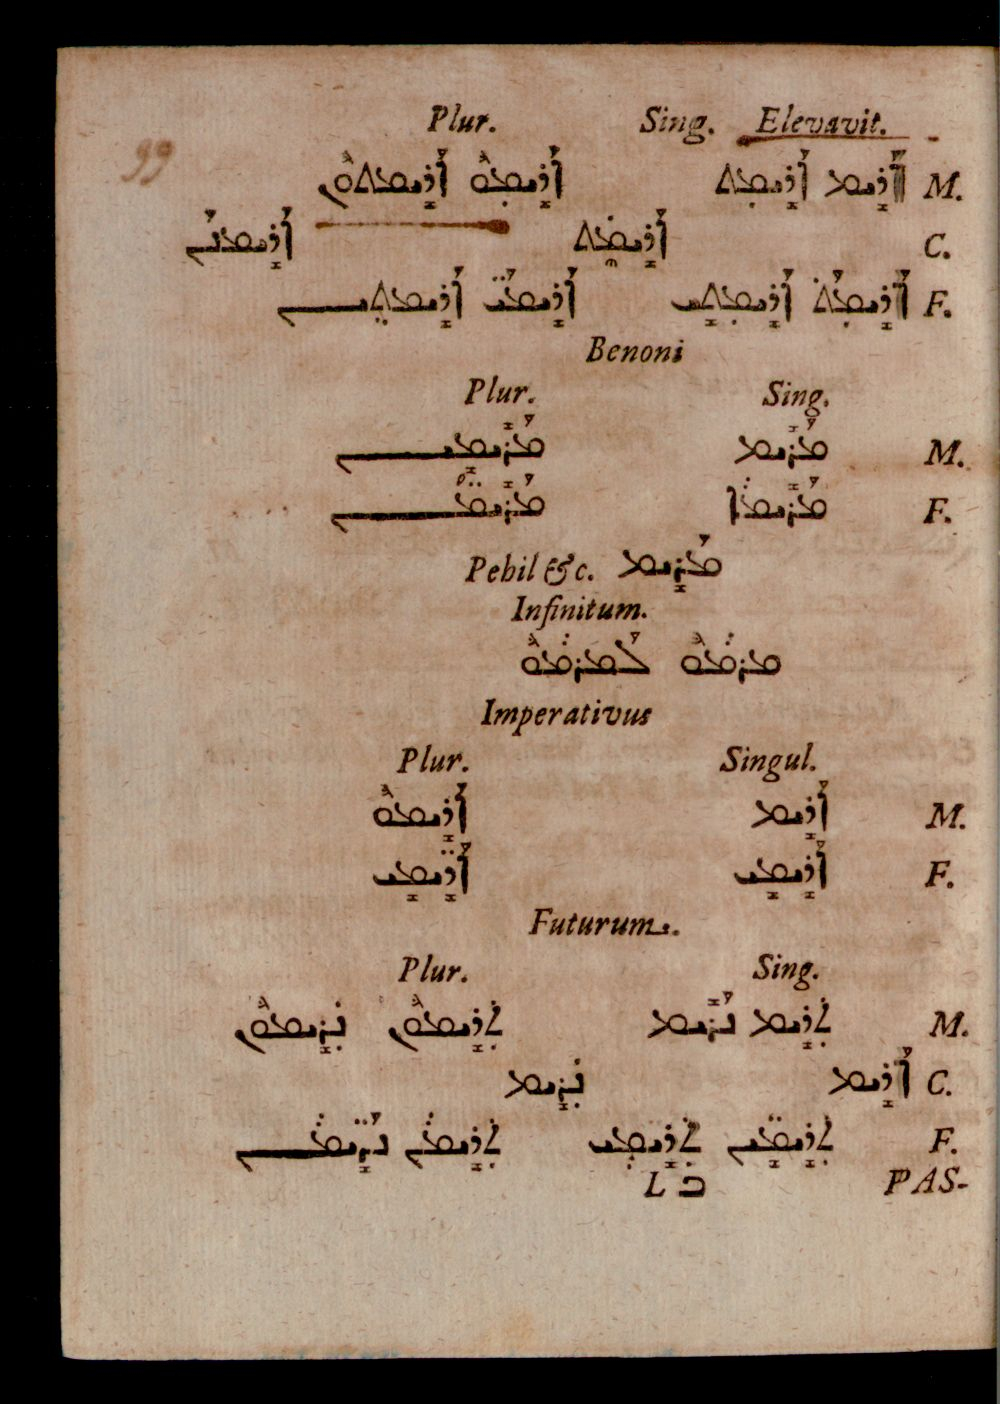 Plur. Sing. Elevavit.
99
M. ܐܪܝܡ ܐܪܝܡܬ ܐܪܝܡܘ ܐܪܝܡܬܘܢ
C. ܐܪܝܡܬ ܐܪܝܡܢܢ
F. ܐܪܝܡܬ ܐܪܝܡܬܝ ܐܪܝܡܝ ܐܪܝܡܬܝܢ
Benoni
Plur. Sing.
M. ܡܪܝܡ ܡܪܝܡܝܢ
F. ܡܪܝܡܐ ܡܪܝܡܢ
Pehil &c. ܡܪܝܡ
Infinitum.
ܡܪܡܘ ܠܡܪܡܘ
Imperativus
Plur. Singul.
M. ܐܪܝܡ ܐܪܝܡܘ
F. ܐܪܝܡܝ ܐܪܝܡܝ
Futurum.
Plur. Sing.
M. ܬܪܝܡ ܢܪܝܡ ܬܪܝܡܘܢ ܢܪܝܡܘܢ
C. ܐܪܝܡ ܢܪܝܡ
F. ܬܪܝܡܝܢ ܬܪܝܡܝ ܬܪܝܡܢ ܢܪܝܡܢ
L כ PAS-